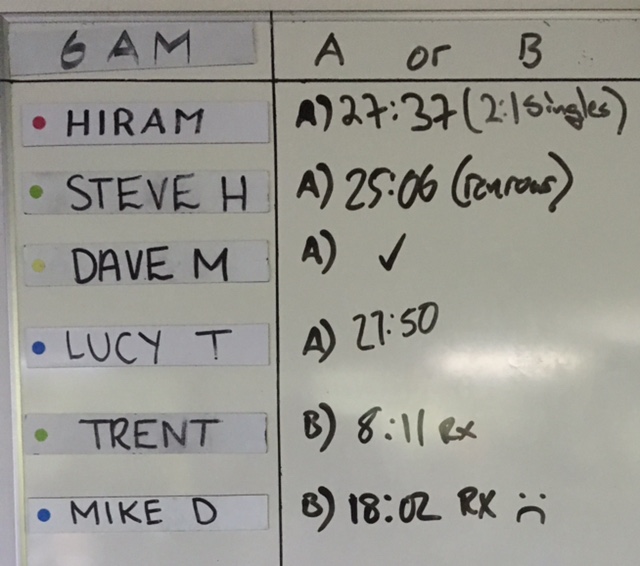 6 AM A or B
HIRAM A) 27:37 (2:1 Singles)
STEVE H A) 25:06
DAVE M A) ✓
LUCY T A) 27:50
TRENT B) 8:11 RX
MIKE D B) 18:02 RX :(